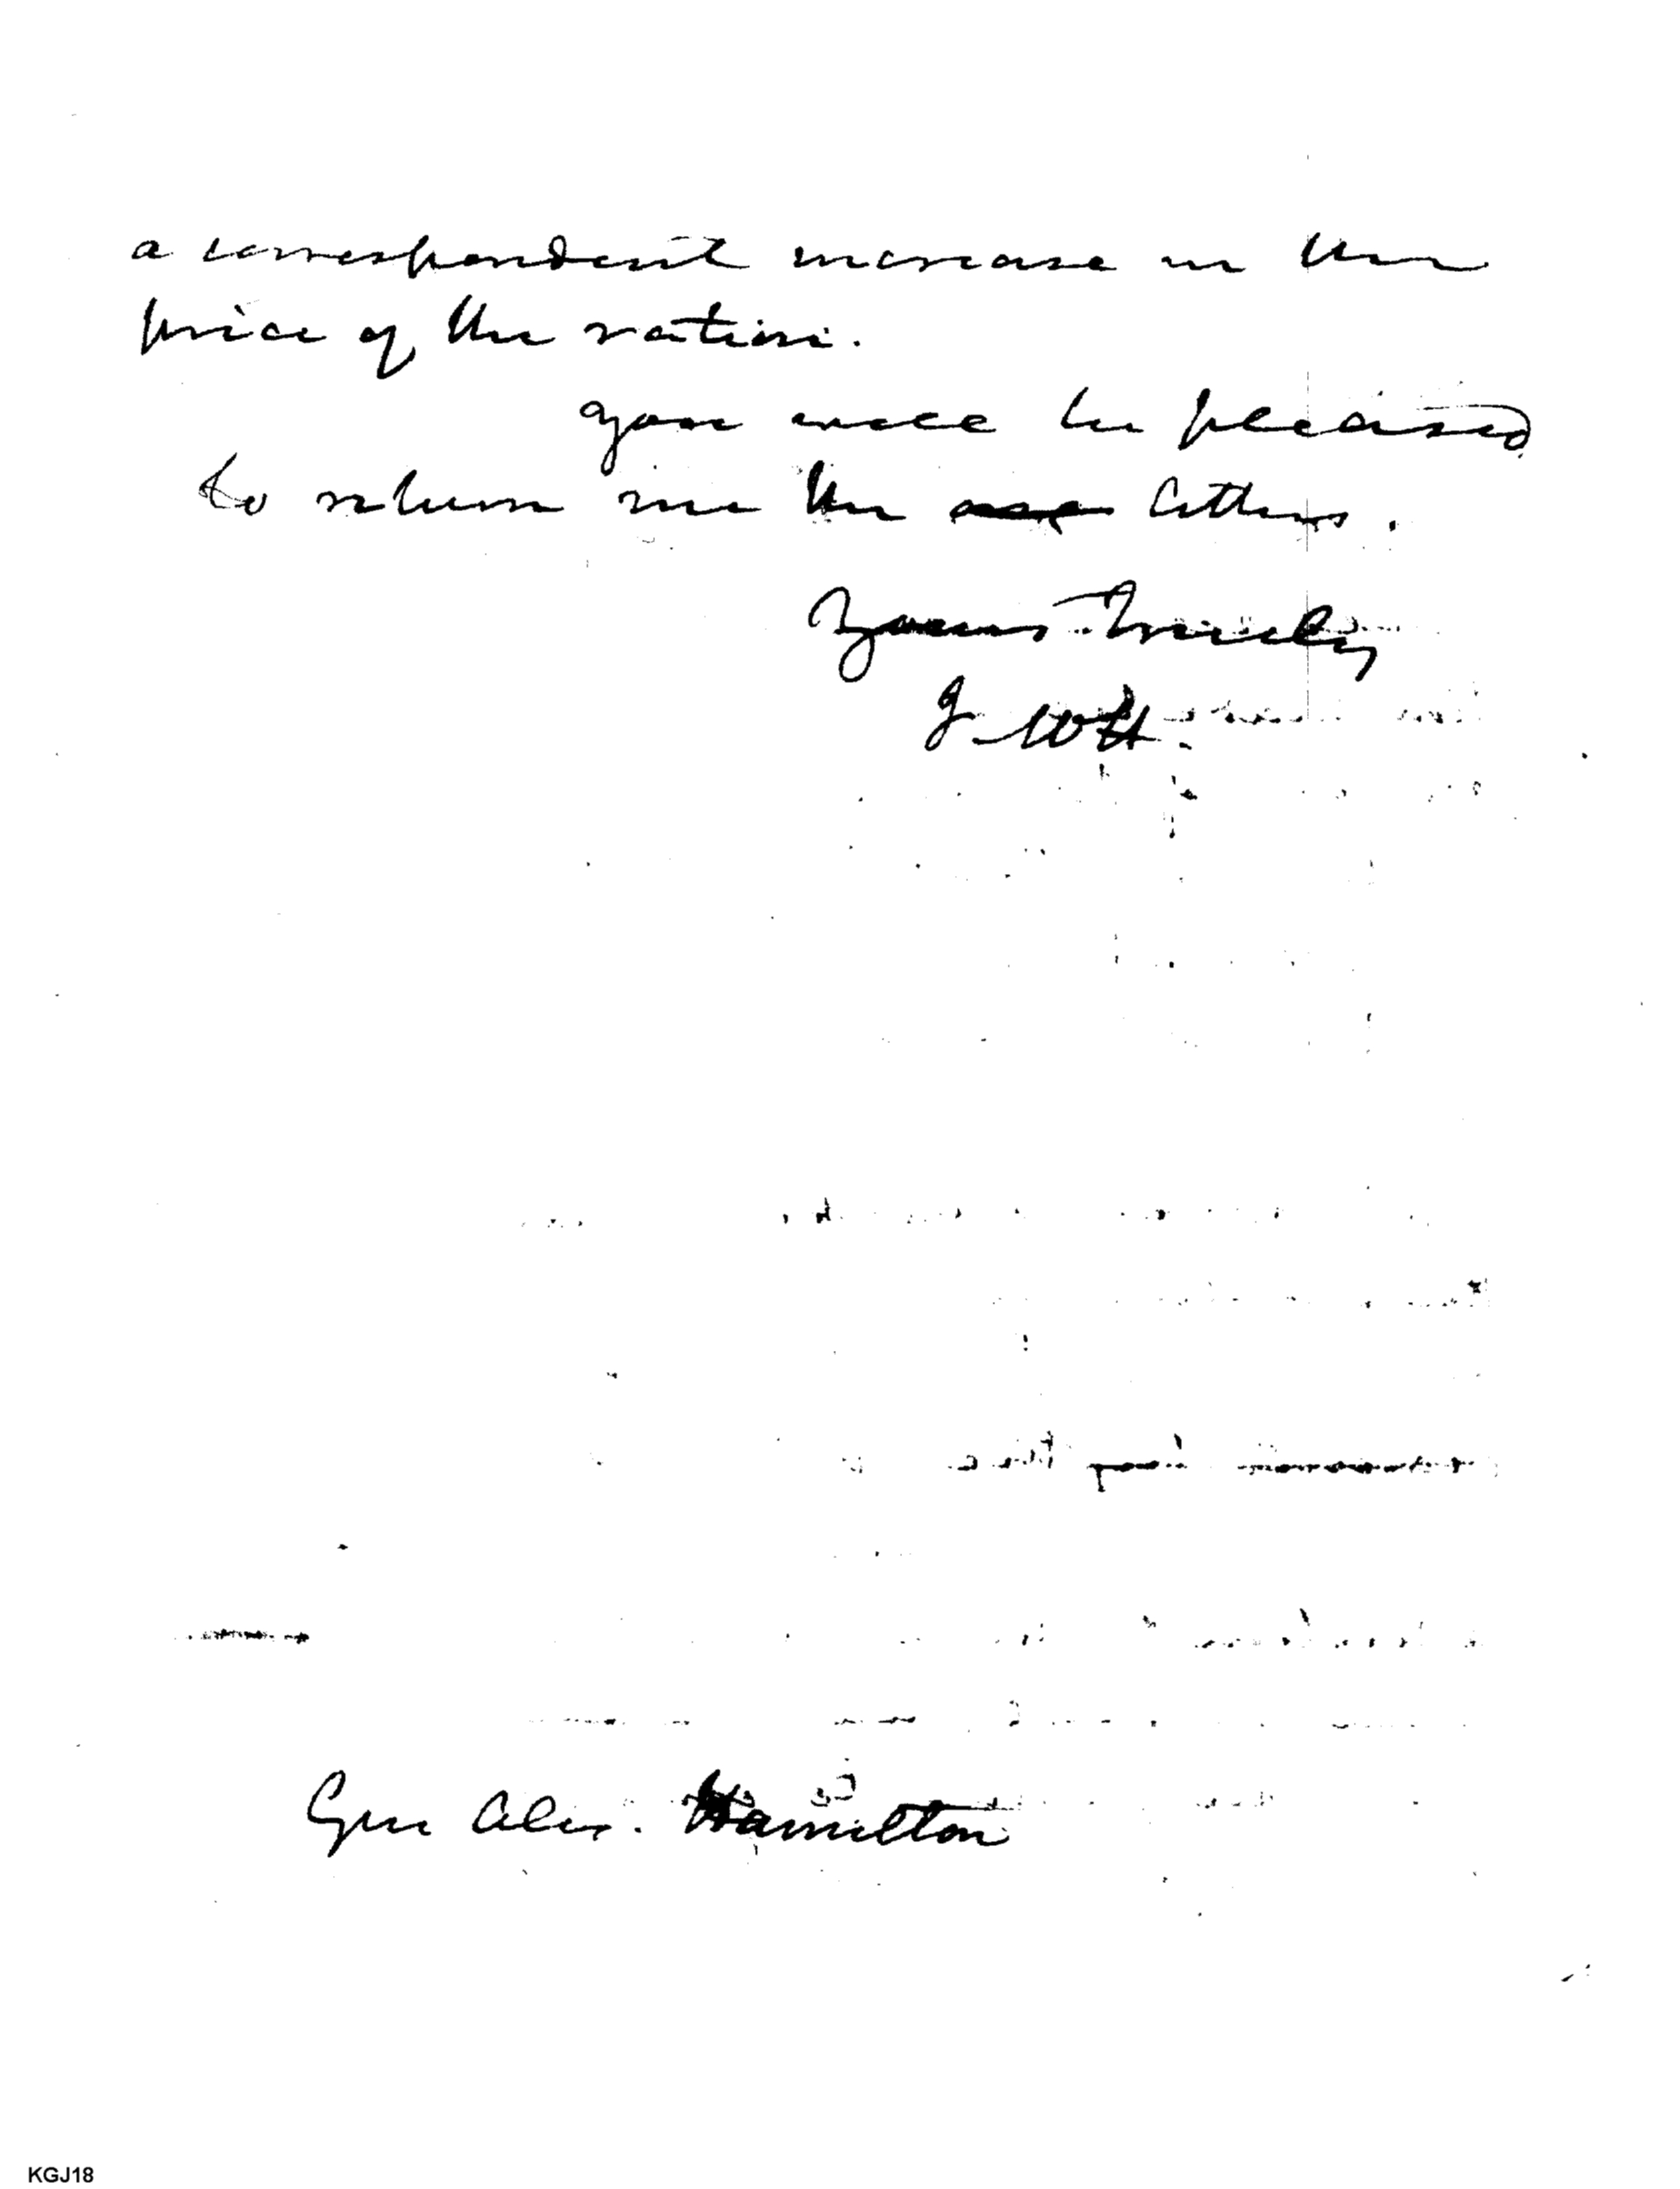 a correspondent increase in the
price of the ration.
you will be pleased
to return me the letters.
Yours Truely
J. WH.
Gen Alex. Hamilton
KGJ18